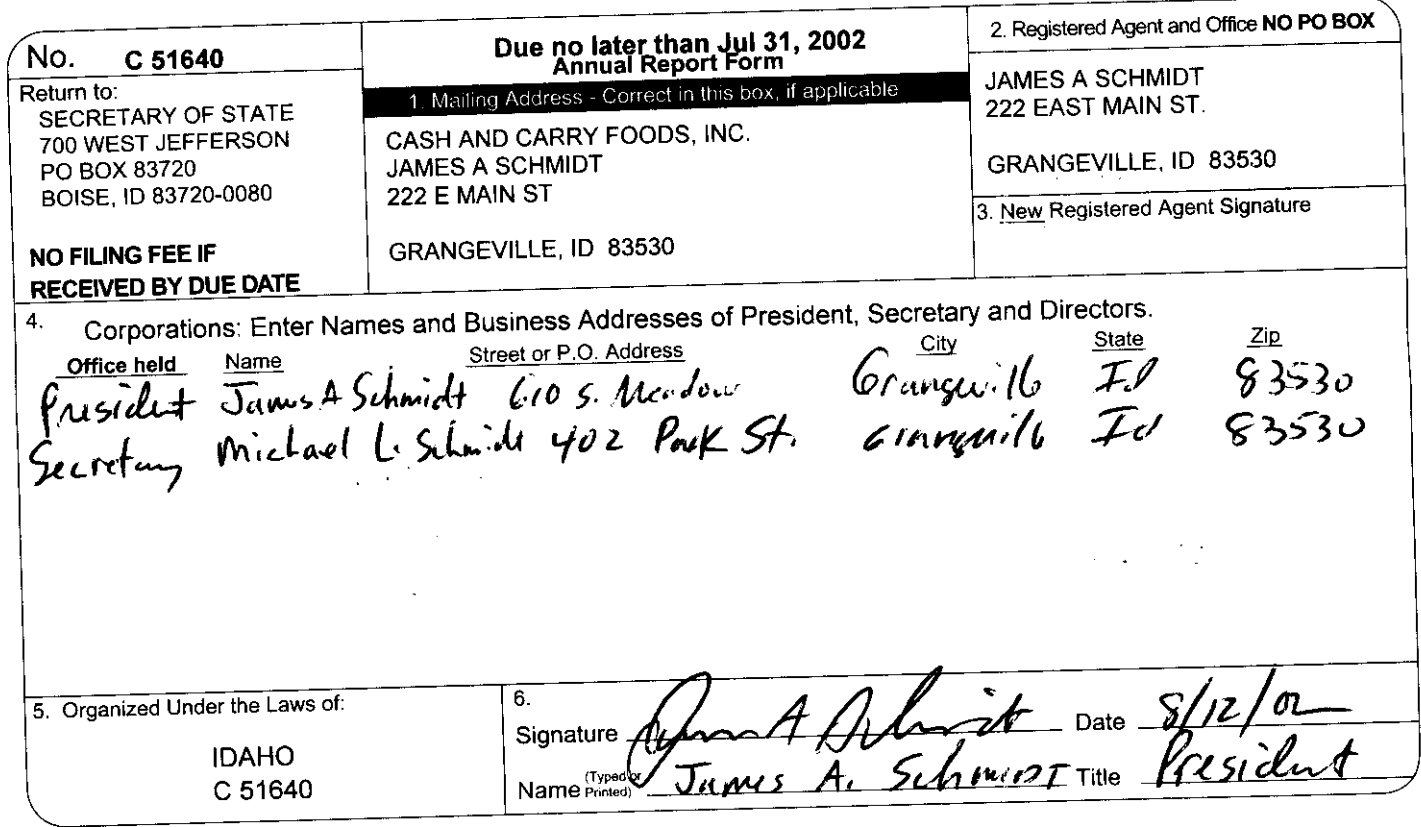 No. C 51640
Return to:
SECRETARY OF STATE
700 WEST JEFFERSON
PO BOX 83720
BOISE, ID 83720-0080
NO FILING FEE IF
RECEIVED BY DUE DATE
Due no later than Jul 31, 2002
Annual Report Form
1. Mailing Address - Correct in this box, if applicable
CASH AND CARRY FOODS, INC.
JAMES A SCHMIDT
222 E MAIN ST
GRANGEVILLE, ID 83530
2. Registered Agent and Office NO PO BOX
JAMES A SCHMIDT
222 EAST MAIN ST.
GRANGEVILLE, ID 83530
3. New Registered Agent Signature
4. Corporations: Enter Names and Business Addresses of President, Secretary and Directors.
Office held Name Street or P.O. Address City State Zip
President James A Schmidt 610 S. Meadow Grangeville Id 83530
Secretary Michael L. Schmidt 402 Park St. Grangeville Id 83530
5. Organized Under the Laws of:
IDAHO
C 51640
6.
Signature James A Schmidt Date 8/12/02
Name (Typed or Printed) James A. Schmidt Title President